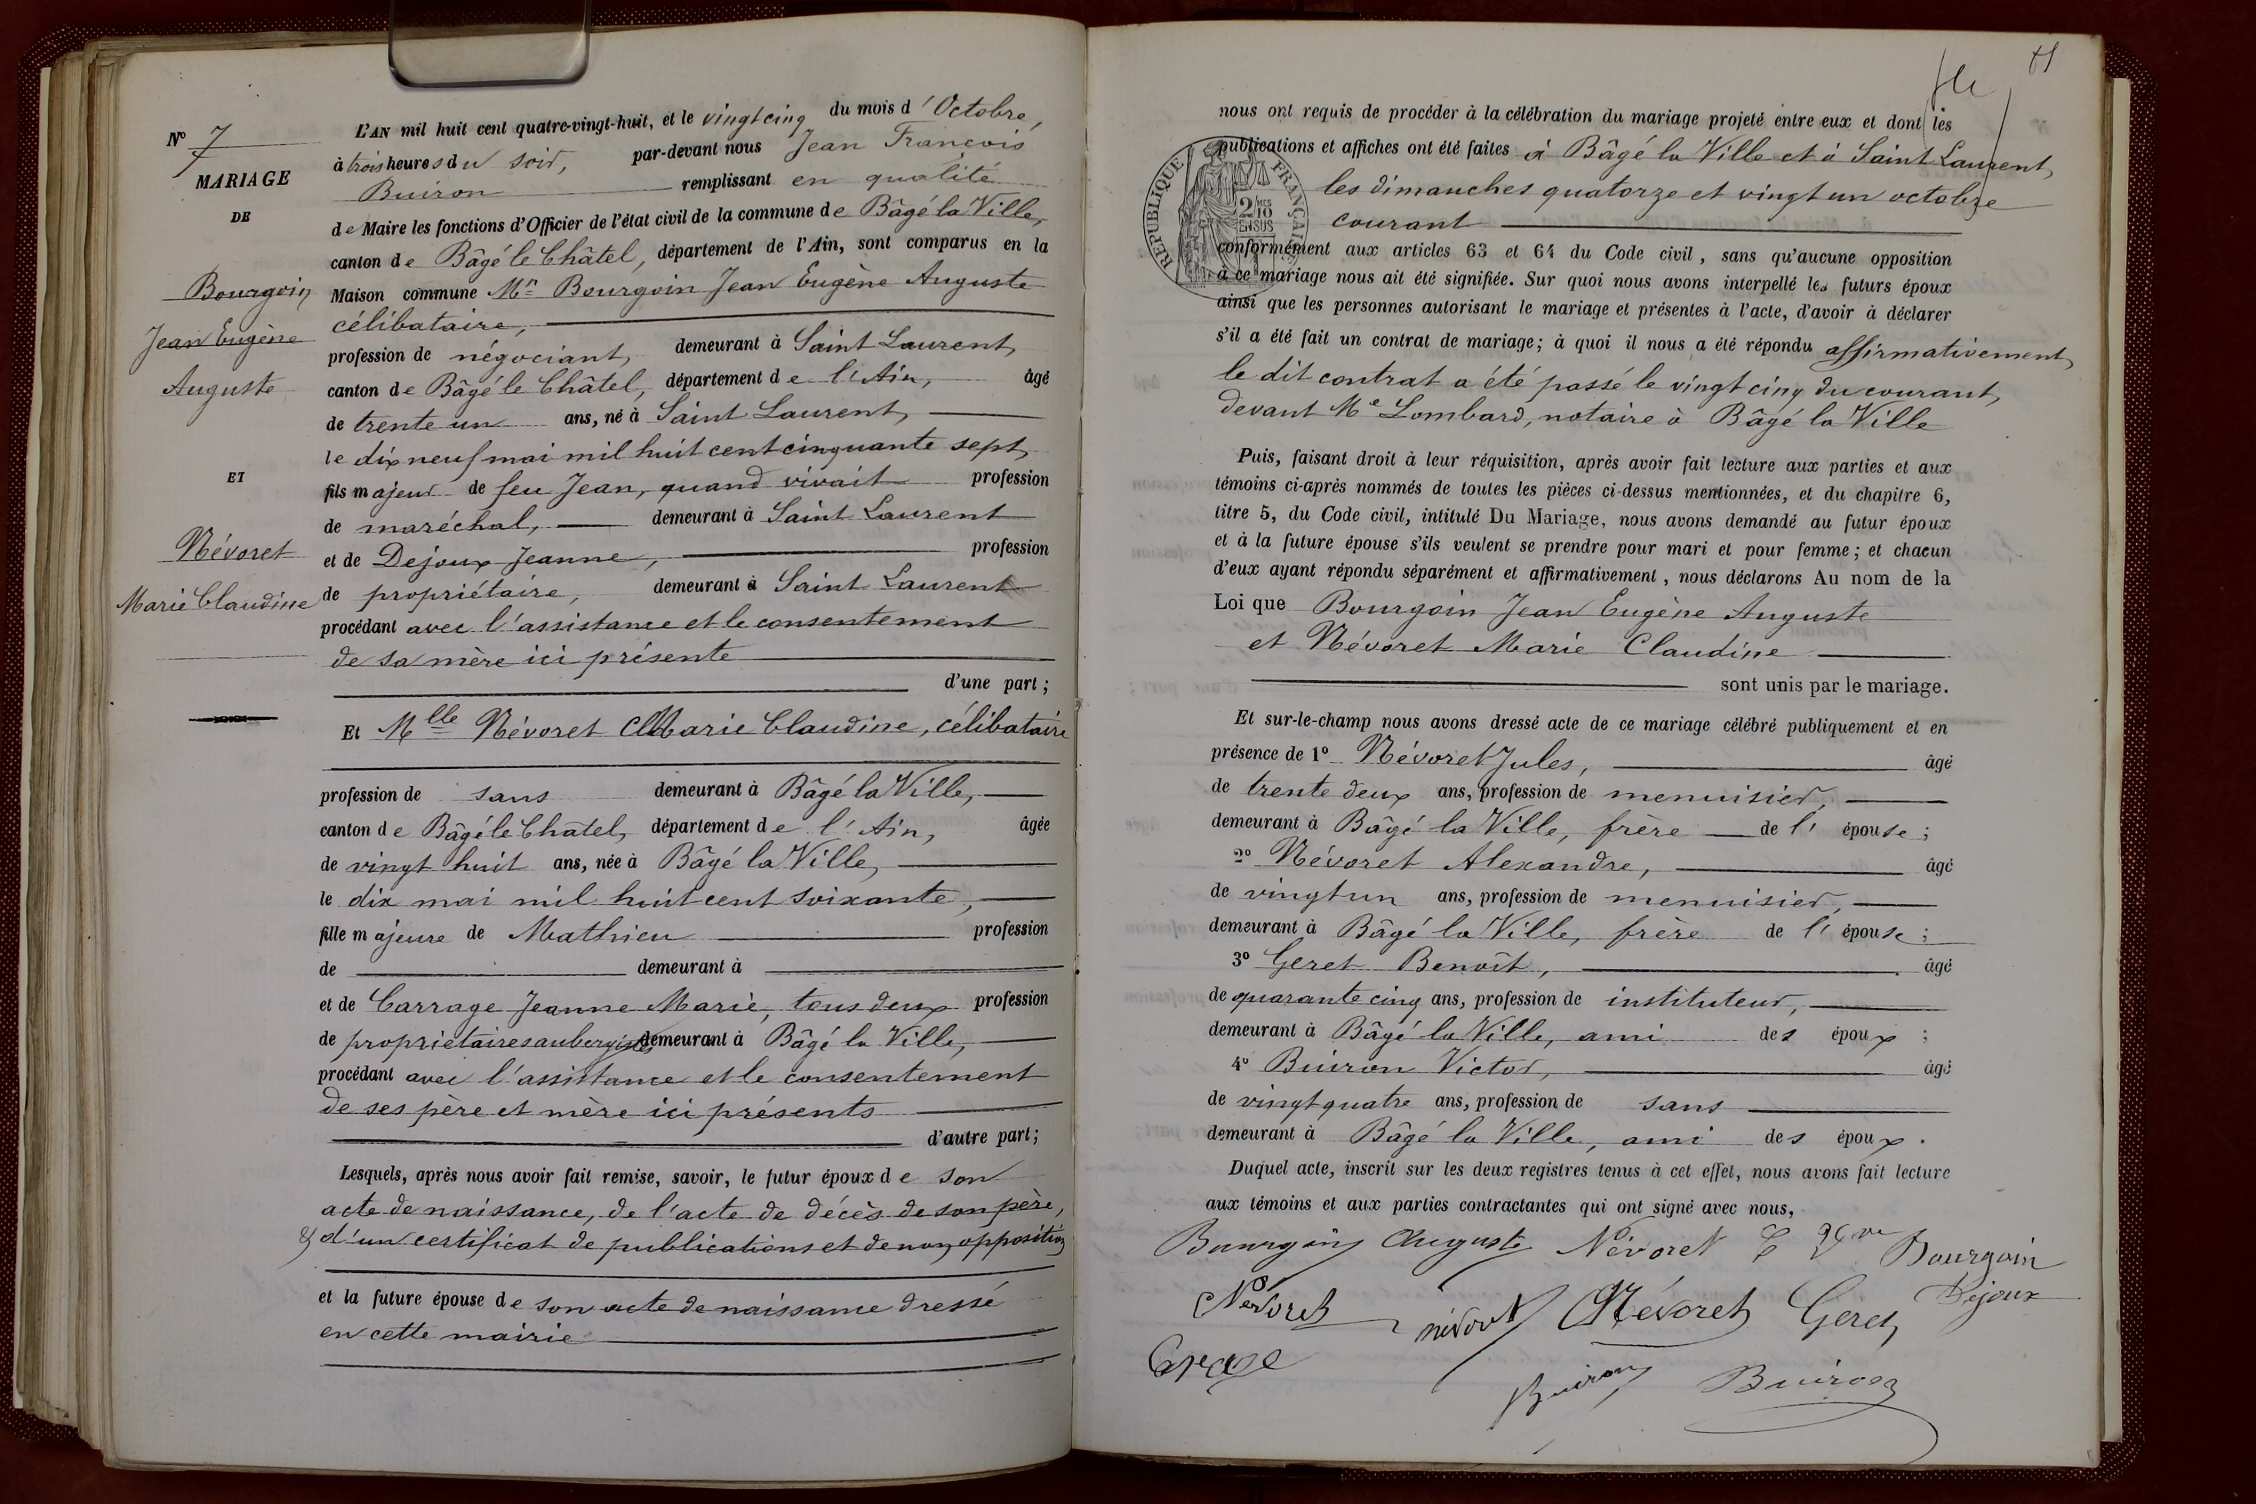 Nº 7
MARIAGE
DE
Bourgoin
Jean Eugène
Auguste
ET
Névoret
Marie Claudine
L'AN mil huit cent quatre-vingt-huit, et le vingt cinq du mois d'Octobre,
à trois heures du soir, par-devant nous Jean François
Buiron remplissant en qualité
de Maire les fonctions d'Officier de l'état civil de la commune de Bâgé la Ville,
canton de Bâgé le Châtel, département de l'Ain, sont comparus en la
Maison commune Mr Bourgoin Jean Eugène Auguste
célibataire,
profession de négociant, demeurant à Saint Laurent,
canton de Bâgé le Châtel, département de l'Ain, âgé
de trente un ans, né à Saint Laurent,
le dix neuf mai mil huit cent cinquante sept,
fils majeur de feu Jean, quand vivait profession
de maréchal, demeurant à Saint Laurent
et de Dejoux Jeanne, profession
de propriétaire, demeurant à Saint Laurent
procédant avec l'assistance et le consentement
de sa mère ici présente
d'une part;
Et Mlle Névoret Marie Claudine, célibataire
profession de sans demeurant à Bâgé la Ville,
canton de Bâgé le Châtel, département de l'Ain, âgée
de vingt huit ans, née à Bâgé la Ville,
le dix mai mil huit cent soixante,
fille majeure de Mathieu profession
de demeurant à
et de Carrage Jeanne Marie, tous deux profession
de propriétaires aubergistes demeurant à Bâgé la Ville,
procédant avec l'assistance et le consentement
de ses père et mère ici présents
d'autre part;
Lesquels, après nous avoir fait remise, savoir, le futur époux de son
acte de naissance, de l'acte de décès de son père,
& d'un certificat de publications et de non opposition
et la future épouse de son acte de naissance dressé
en cette mairie
nous ont requis de procéder à la célébration du mariage projeté entre eux et dont les
publications et affiches ont été faites à Bâgé la Ville et à Saint Laurent,
les dimanches quatorze et vingt un octobre
courant
RÉPUBLIQUE FRANÇAISE
2 MES 10
EN SUS
conformément aux articles 63 et 64 du Code civil, sans qu'aucune opposition
à ce mariage nous ait été signifiée. Sur quoi nous avons interpellé les futurs époux
ainsi que les personnes autorisant le mariage et présentes à l'acte, d'avoir à déclarer
s'il a été fait un contrat de mariage; à quoi il nous a été répondu affirmativement,
le dit contrat a été passé le vingt cinq du courant,
devant Me Lombard, notaire à Bâgé la Ville
Puis, faisant droit à leur réquisition, après avoir fait lecture aux parties et aux
témoins ci-après nommés de toutes les pièces ci-dessus mentionnées, et du chapitre 6,
titre 5, du Code civil, intitulé Du Mariage, nous avons demandé au futur époux
et à la future épouse s'ils veulent se prendre pour mari et pour femme; et chacun
d'eux ayant répondu séparément et affirmativement, nous déclarons Au nom de la
Loi que Bourgoin Jean Eugène Auguste
et Névoret Marie Claudine
sont unis par le mariage.
Et sur-le-champ nous avons dressé acte de ce mariage célébré publiquement et en
présence de 1º Névoret Jules, âgé
de trente deux ans, profession de menuisier,
demeurant à Bâgé la Ville, frère de l'épouse;
2º Névoret Alexandre, âgé
de vingt un ans, profession de menuisier,
demeurant à Bâgé la Ville, frère de l'épouse;
3º Geret Benoît, âgé
de quarante cinq ans, profession de instituteur,
demeurant à Bâgé la Ville, ami des époux;
4º Buiron Victor, âgé
de vingt quatre ans, profession de sans
demeurant à Bâgé la Ville, ami des époux.
Duquel acte, inscrit sur les deux registres tenus à cet effet, nous avons fait lecture
aux témoins et aux parties contractantes qui ont signé avec nous,
Bourgoin Auguste Névoret C Vve Bourgoin
Dejoux
Névoret névoret Névoret Geret
Buiron Buiron